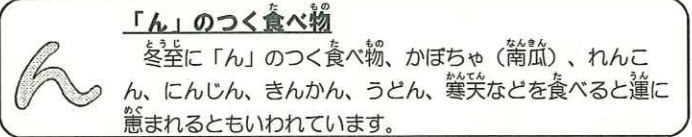 「ん」のつく食べ物
冬至に「ん」のつく食べ物、かぼちゃ（南瓜）、れんこ
ん、にんじん、きんかん、うどん、寒天などを食べると運に
恵まれるともいわれています。
ん